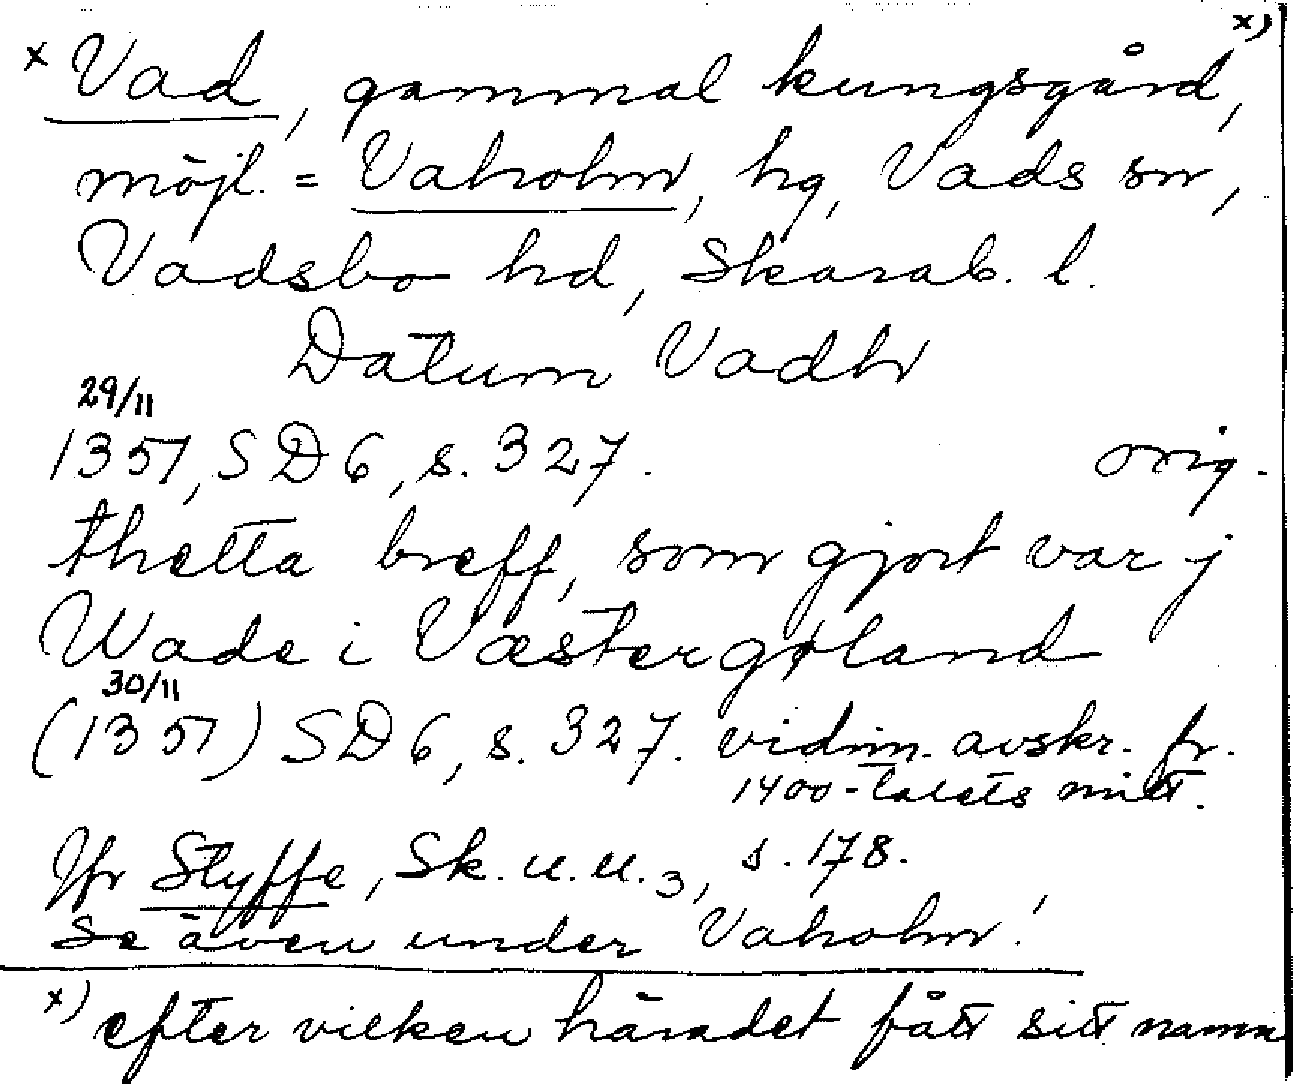 x Vad, gammal kungsgård, x)
möjl. = Vaholm, hg, Vads sn,
Vadsbo hd, Skarab. l.
Datum Vadh
29/11
1351, SD 6, s. 327. orig.
thetta breff, som gjort var j
Wade i Væstergøland
30/11
(1351) SD 6, s. 327. vidim. avskr. fr.
1400-talets mitt.
Jfr Styffe, Sk. u. u. 3, s. 178.
Se även under Vaholm!
x) efter vilken häradet fått sitt namn